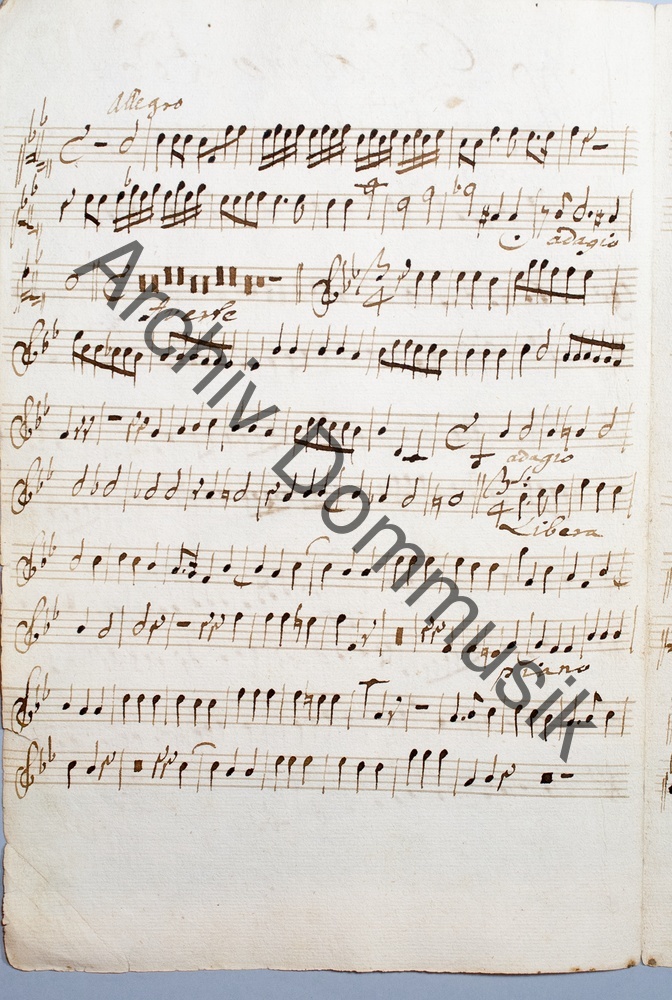 Allegro
adagio
adagio
Libera
piano
Archiv Dommusik